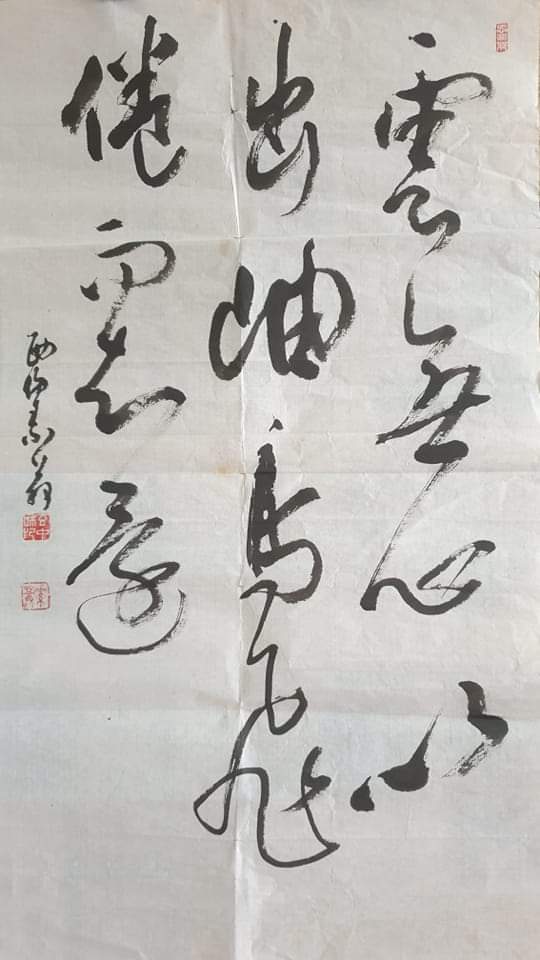 雲無心以
出岫鳥飛
倦而知還